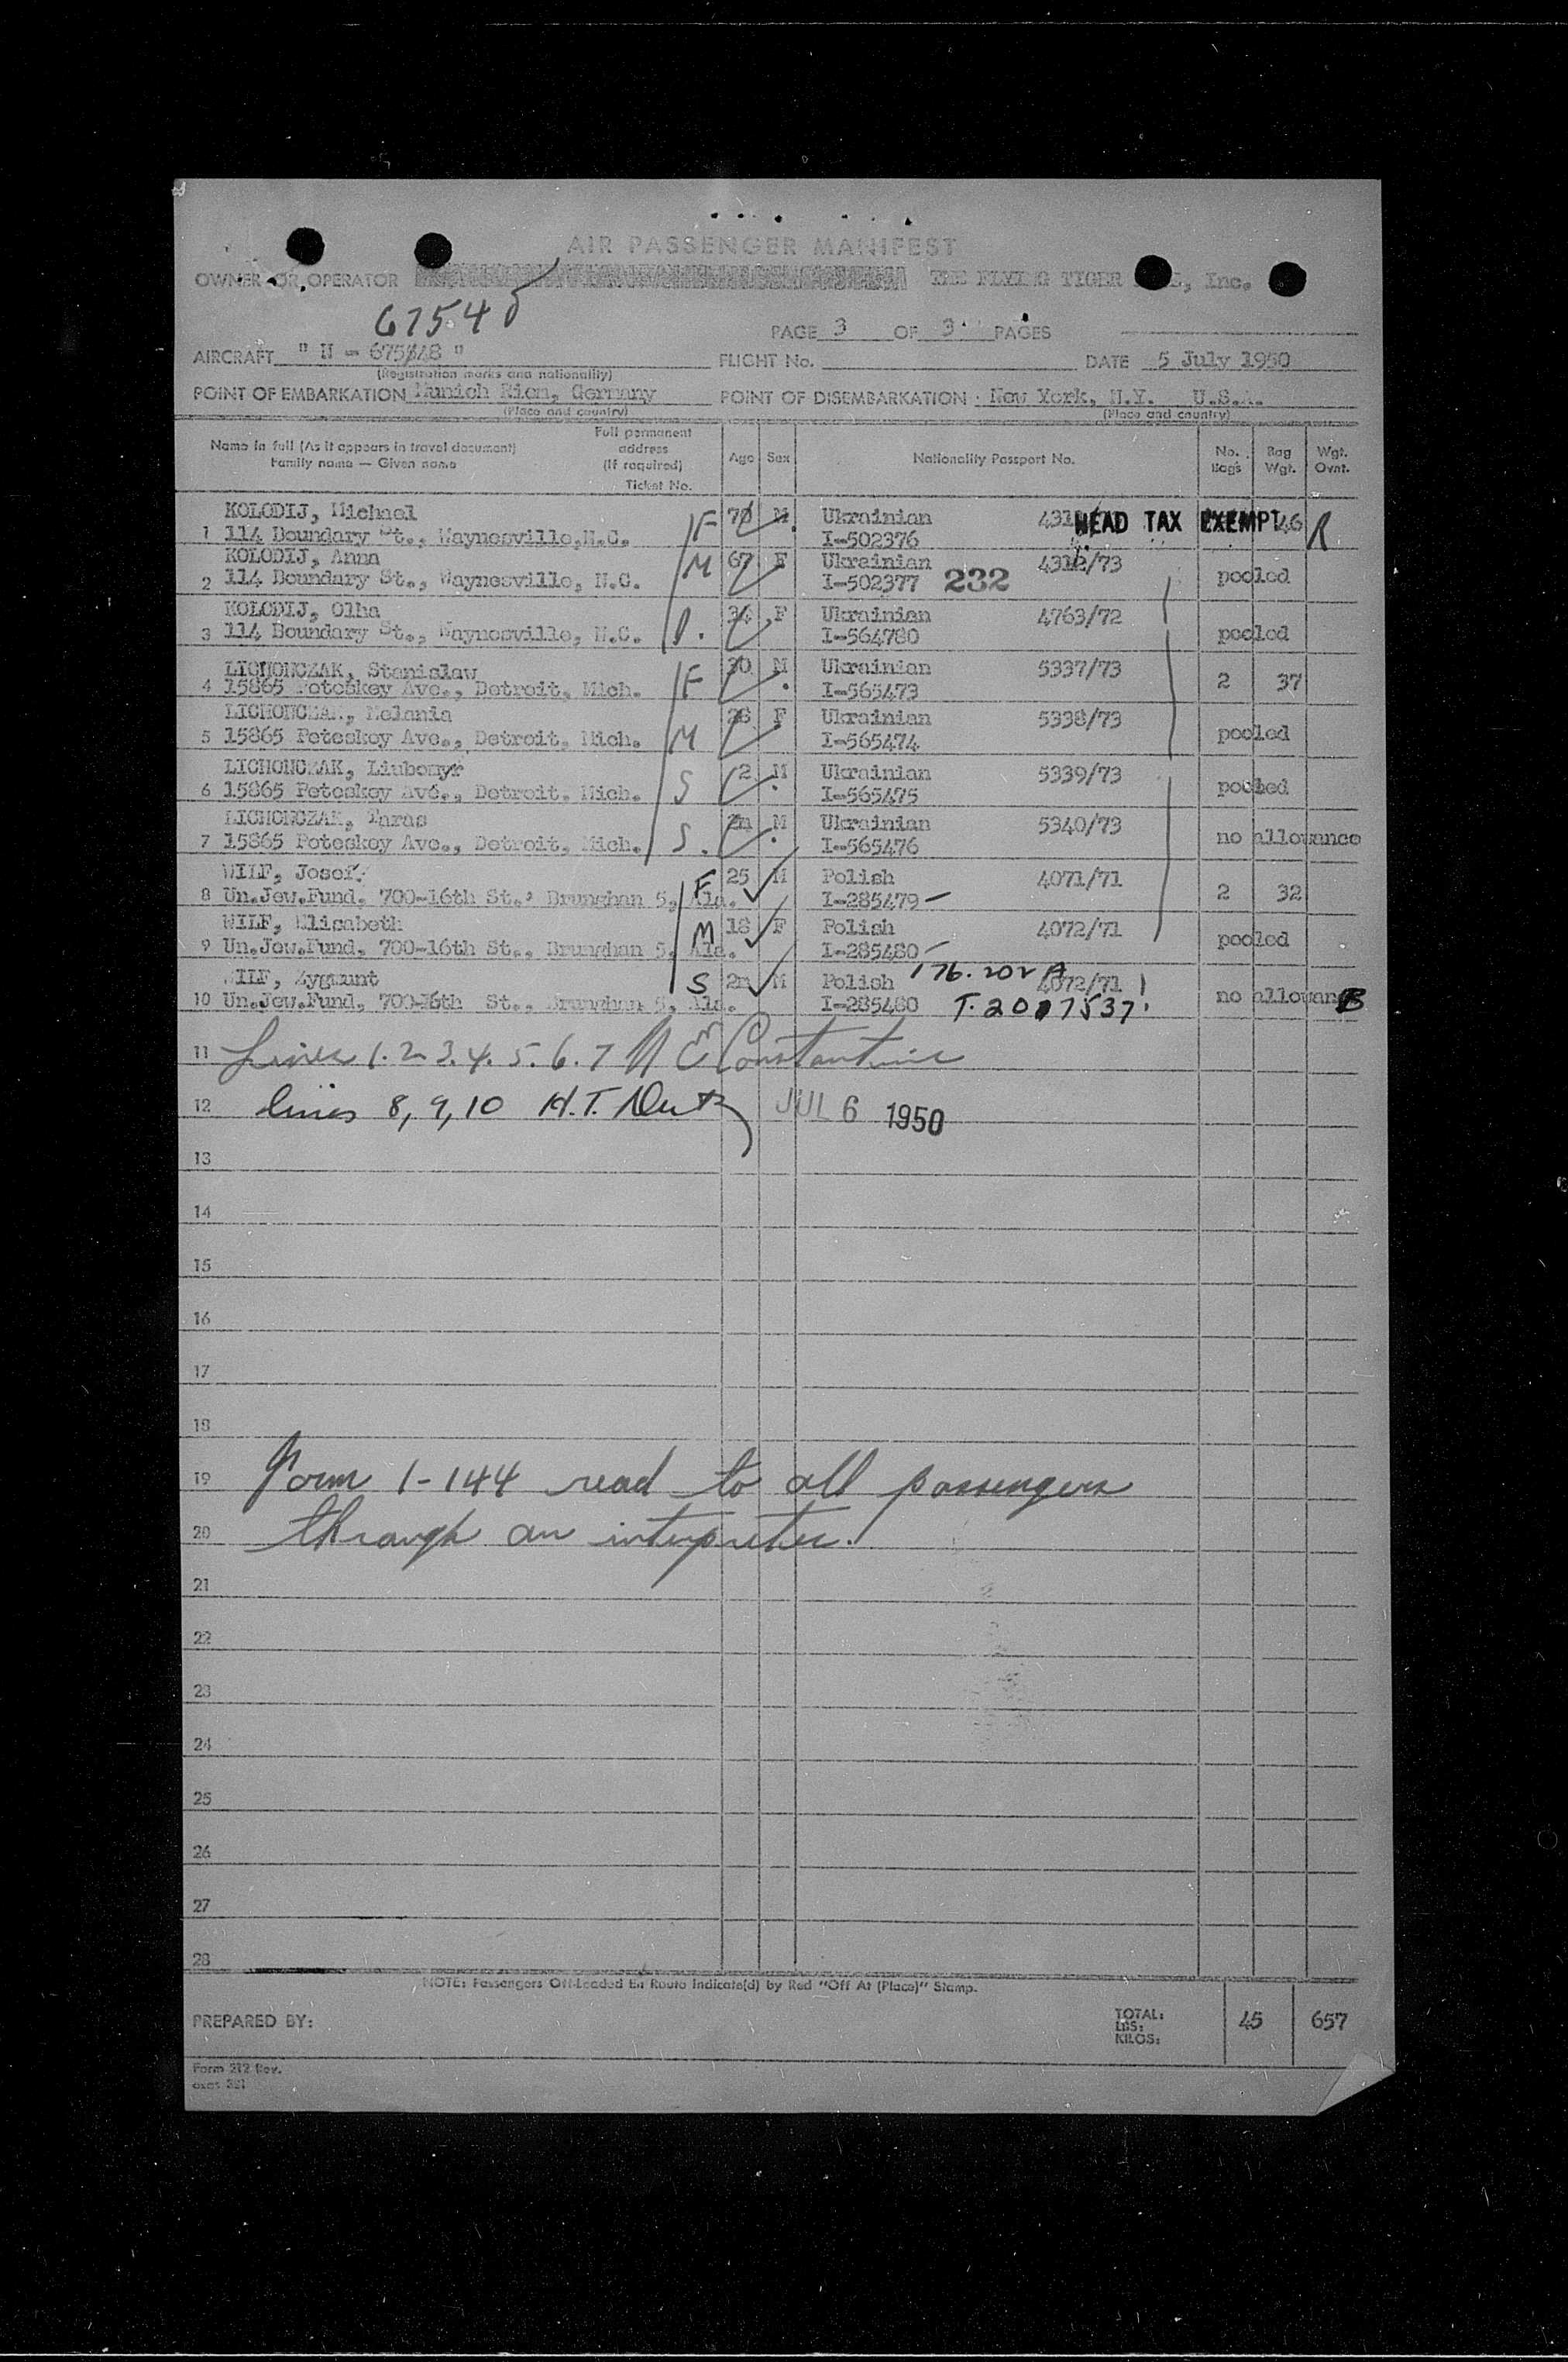 AIR PASSENGER MANIFEST
OWNER OR OPERATOR THE FLYING TIGER , Inc.
67545
PAGE 3 OF 3 PAGES
AIRCRAFT " N - 675448 " FLIGHT No. DATE 5 July 1950
(Registration marks and nationality)
POINT OF EMBARKATION Munich Riem, Germany POINT OF DISEMBARKATION New York, N.Y. U.S.A.
(Place and country) (Place and country)
Name in full (As it appears in travel document) Family name — Given name Full permanent address (If required) Ticket No. Age Sex Nationality Passport No. No. Bags Bag Wgt. Wgt. Ovnt.
KOLODIJ, Michael F M Ukrainian HEAD TAX EXEMPT 46 R
1 114 Boundary St., Waynesville, N.C. I-502376
KOLODIJ, Anna M 67 F Ukrainian 4312/73
2 114 Boundary St., Waynesville, N.C. I-502377 232 pooled
KOLODIJ, Olha 34 F Ukrainian 4763/72
3 114 Boundary St., Waynesville, N.C. D. I-564780 pooled
LICHONCZAK, Stanislaw F 30 M Ukrainian 5337/73
4 15865 Petoskey Ave., Detroit, Mich. I-565473 2 37
LICHONCZAK, Melania 28 F Ukrainian 5338/73
5 15865 Petoskey Ave., Detroit, Mich. M I-565474 pooled
LICHONCZAK, Liubomyr 2 M Ukrainian 5339/73
6 15865 Petoskey Ave., Detroit, Mich. S I-565475 pooled
LICHONCZAK, Taras M Ukrainian 5340/73
7 15865 Petoskey Ave., Detroit, Mich. S. I-565476 no allowance
WILF, Josef F 25 M Polish 4071/71
8 Un.Jew.Fund, 700-16th St., Brunghan 5, Ala. I-285479 2 32
WILF, Elisabeth M 18 F Polish 4072/71
9 Un.Jew.Fund, 700-16th St., Brunghan 5, Ala. I-285480 pooled
WILF, Zygmunt S 2m M Polish 176.202 A 4072/71
10 Un.Jew.Fund, 700-16th St., Brunghan 5, Ala. I-285480 T-2007537 no allowance B
11 Lines 1. 2 3. 4. 5. 6. 7 N E Constantine
12 lines 8, 9, 10 H.T. JUL 6 1950
13
14
15
16
17
18
19 Form I-144 read to all passengers
20 through an interpreter.
21
22
23
24
25
26
27
28
NOTE: Passengers Off-Loaded En Route Indicate(d) by Red "Off At (Place)" Stamp.
PREPARED BY: TOTAL: LBS: KILOS: 45 657
Form 212 Rev.